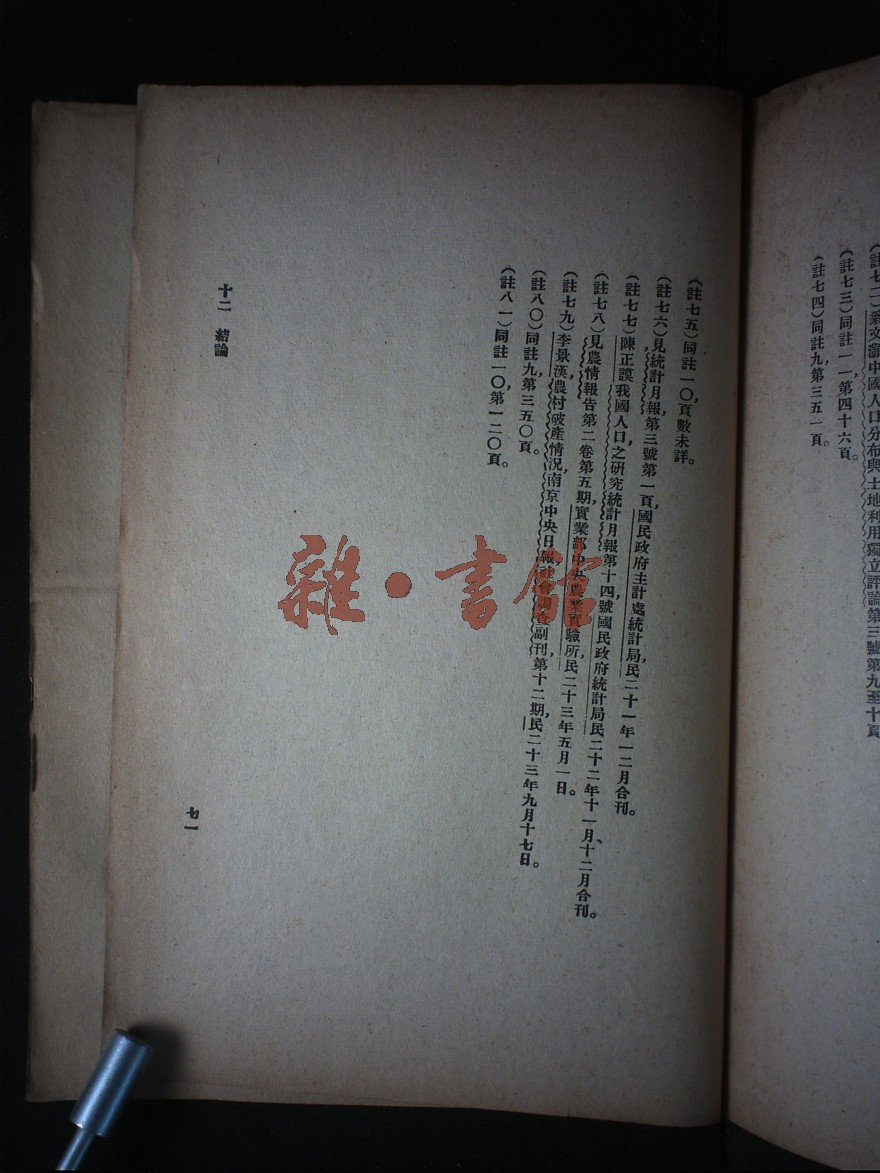 (註七二)翁文灝中國人口分布與土地利用獨立評論第三號第九至十頁
(註七三)同註一一,第四十六頁。
(註七四)同註九第三五一頁。
(註七五)同註一〇,頁數未詳。
(註七六)見統計月報,第三號第一頁,國民政府主計處統計局,民二十一年一二月合刊。
(註七七)陳正謨我國人口之研究統計月報第十四號國民政府統計局民二十二年十一月、十二月合刊。
(註七八)見農情報告第二卷第五期,實業部中央農業實驗所,民二十三年五月一日。
(註七九)李景漢農村破產情況,南京中央日報社會調查副刊,第十二期,民二十三年九月十七日。
(註八〇)同註九,第三五〇頁。
(註八一)同註一〇,第一二〇頁。
十二 結論
七一
雜·書館